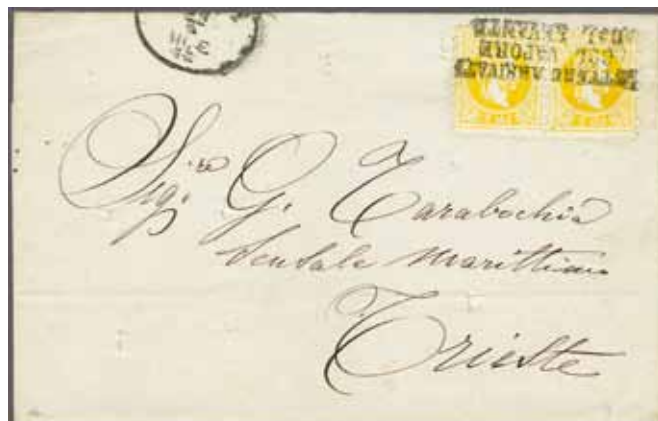 LETTERE ARRIVATE
COL VAPORE
DAL LEVANTE
Sigre G. Tarabochia
Sensale Marittimo
Trieste